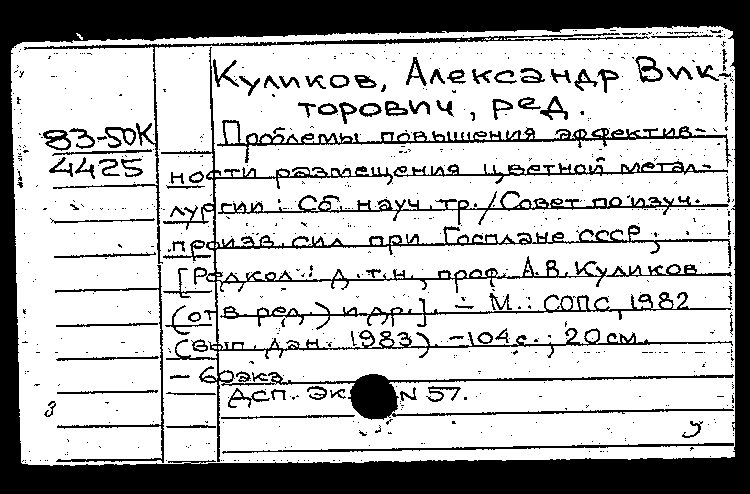 Куликов, Александр Вик-
торович, ред.
83-50К
4425
Проблемы повышения эффектив-
ности размещения цветной метал-
лургии: Сб. науч. тр./Совет по изуч.
произв. сил при Госплане СССР;
[Редкол.: д.т.н., проф. А.В. Куликов
(отв. ред.) и др.]. – М.: СОПС, 1982
(вып. дан. 1983). – 104 с.; 20 см.
– 60 экз.
Дсп. Эк N 57.
З
У